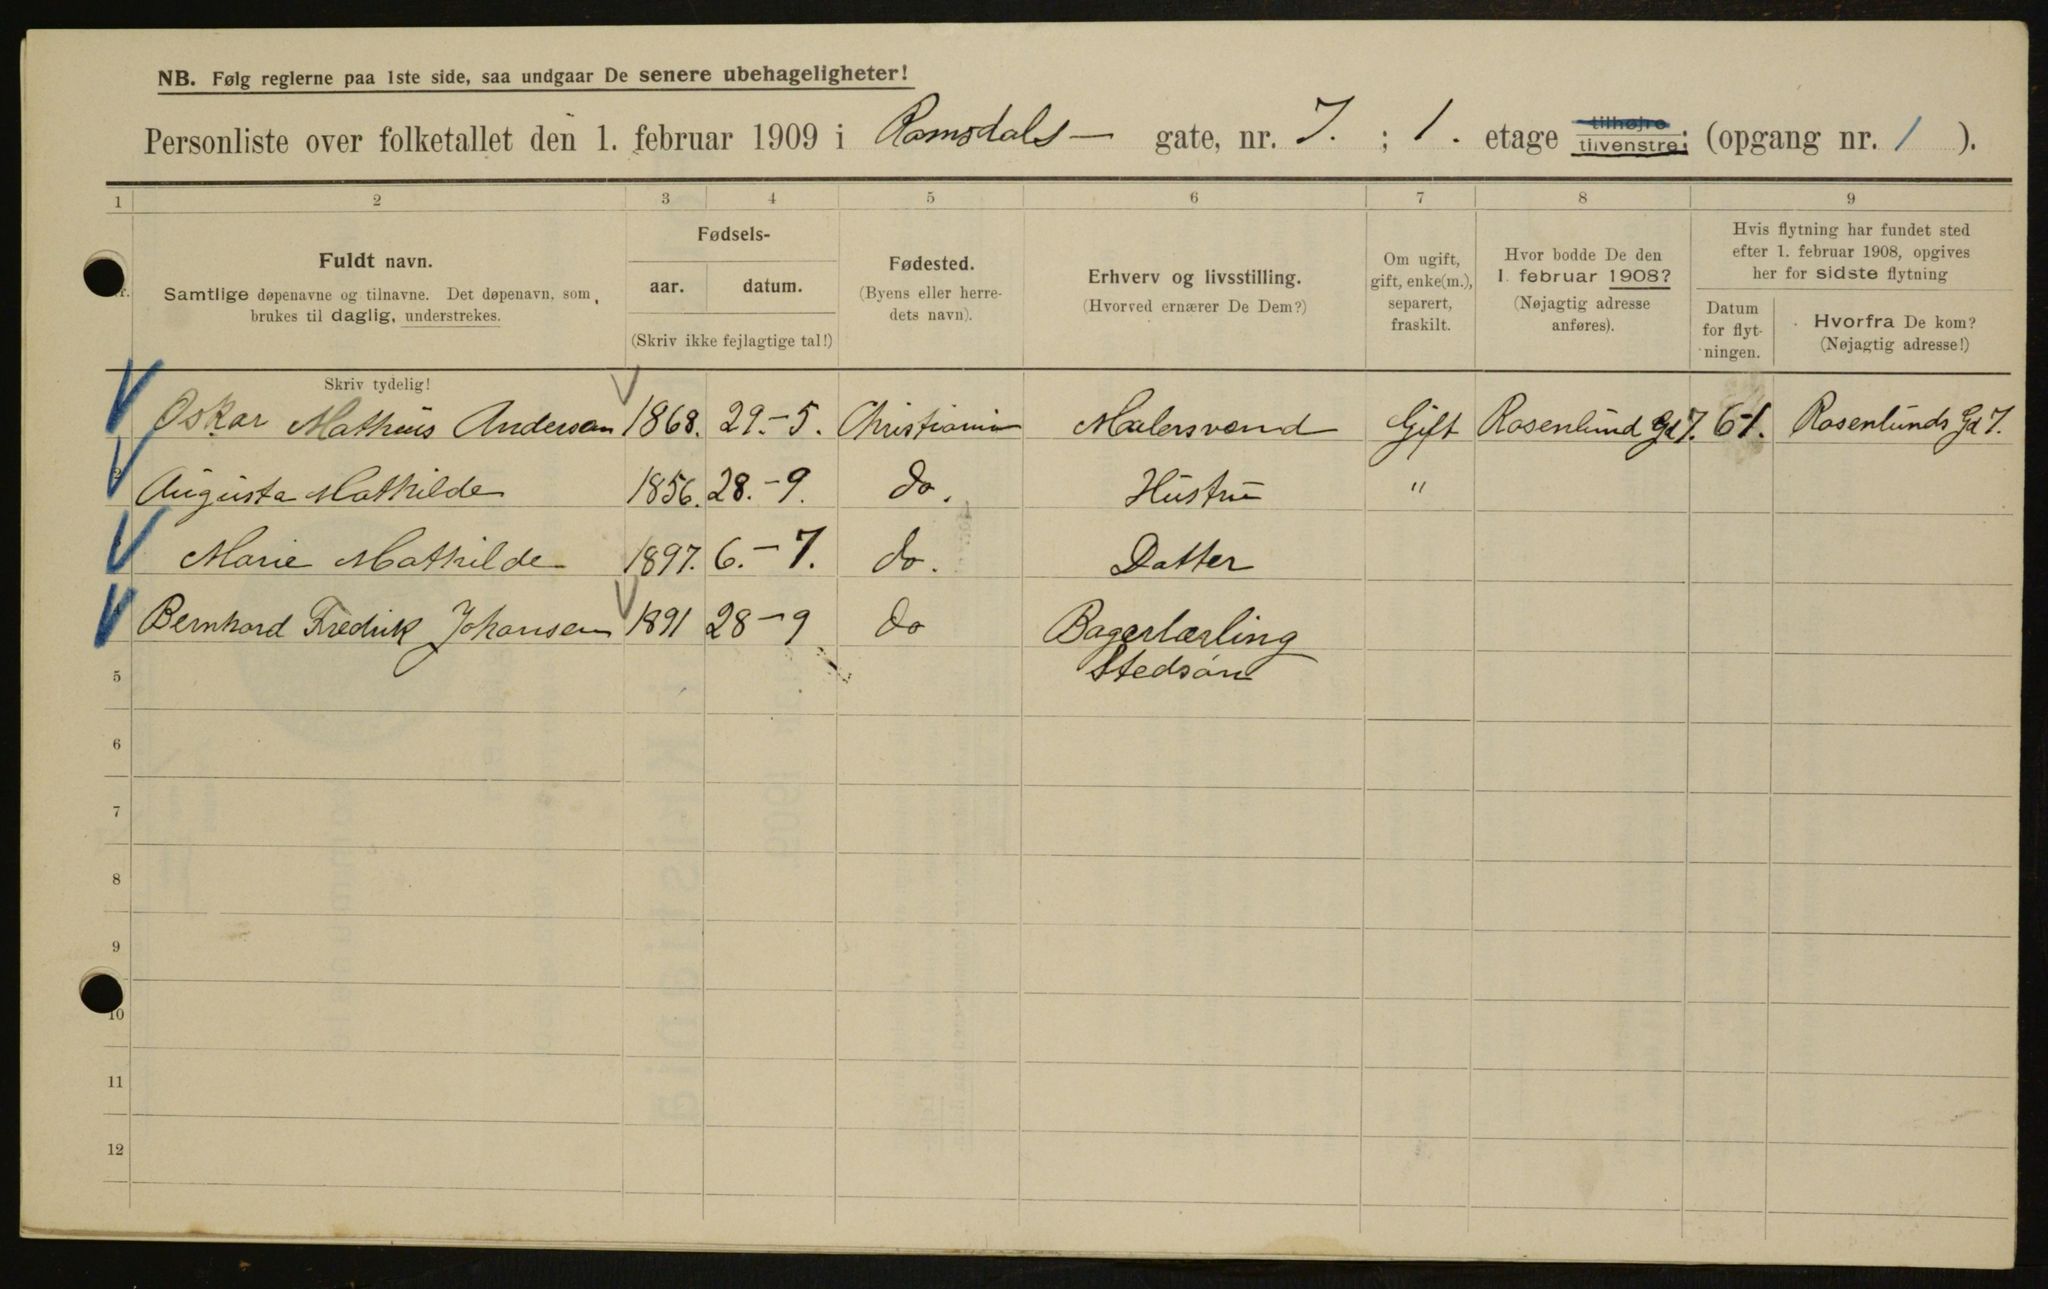 NB. Følg reglerne paa 1ste side, saa undgaar De senere ubehageligheter!
Personliste over folketallet den 1. februar 1909 i Romsdals- gate, nr. 7. ; 1. etage tilhøjre tilvenstre; (opgang nr. 1 ).
1 2 3 4 5 6 7 8 9
Fuldt navn.
Samtlige døpenavne og tilnavne. Det døpenavn, som
brukes til daglig, understrekes.
Skriv tydelig!
Fødsels-
aar. datum.
(Skriv ikke fejlagtige tal!)
Fødested.
(Byens eller herre-
dets navn).
Erhverv og livsstilling.
(Hvorved ernærer De Dem?)
Om ugift,
gift, enke(m.),
separert,
fraskilt.
Hvor bodde De den
1. februar 1908?
(Nøjagtig adresse
anføres).
Hvis flytning har fundet sted
efter 1. februar 1908, opgives
her for sidste flytning
Datum
for flyt-
ningen.
Hvorfra De kom?
(Nøjagtig adresse!)
Oskar Mathius Andersen 1868. 29.-5. Christiania Malersvend Gift Rosenlund Gd 7. 6-1. Rosenlunds Gd 7.
Augusta Mathilde 1856. 28.-9. do. Hustru "
Marie Mathilde 1897. 6.-7. do. Datter
Bernhard Fredrik Johansen 1891 28-9 do Bagerlærling
5 Stedsøn
6
7
8
9
10
11
12